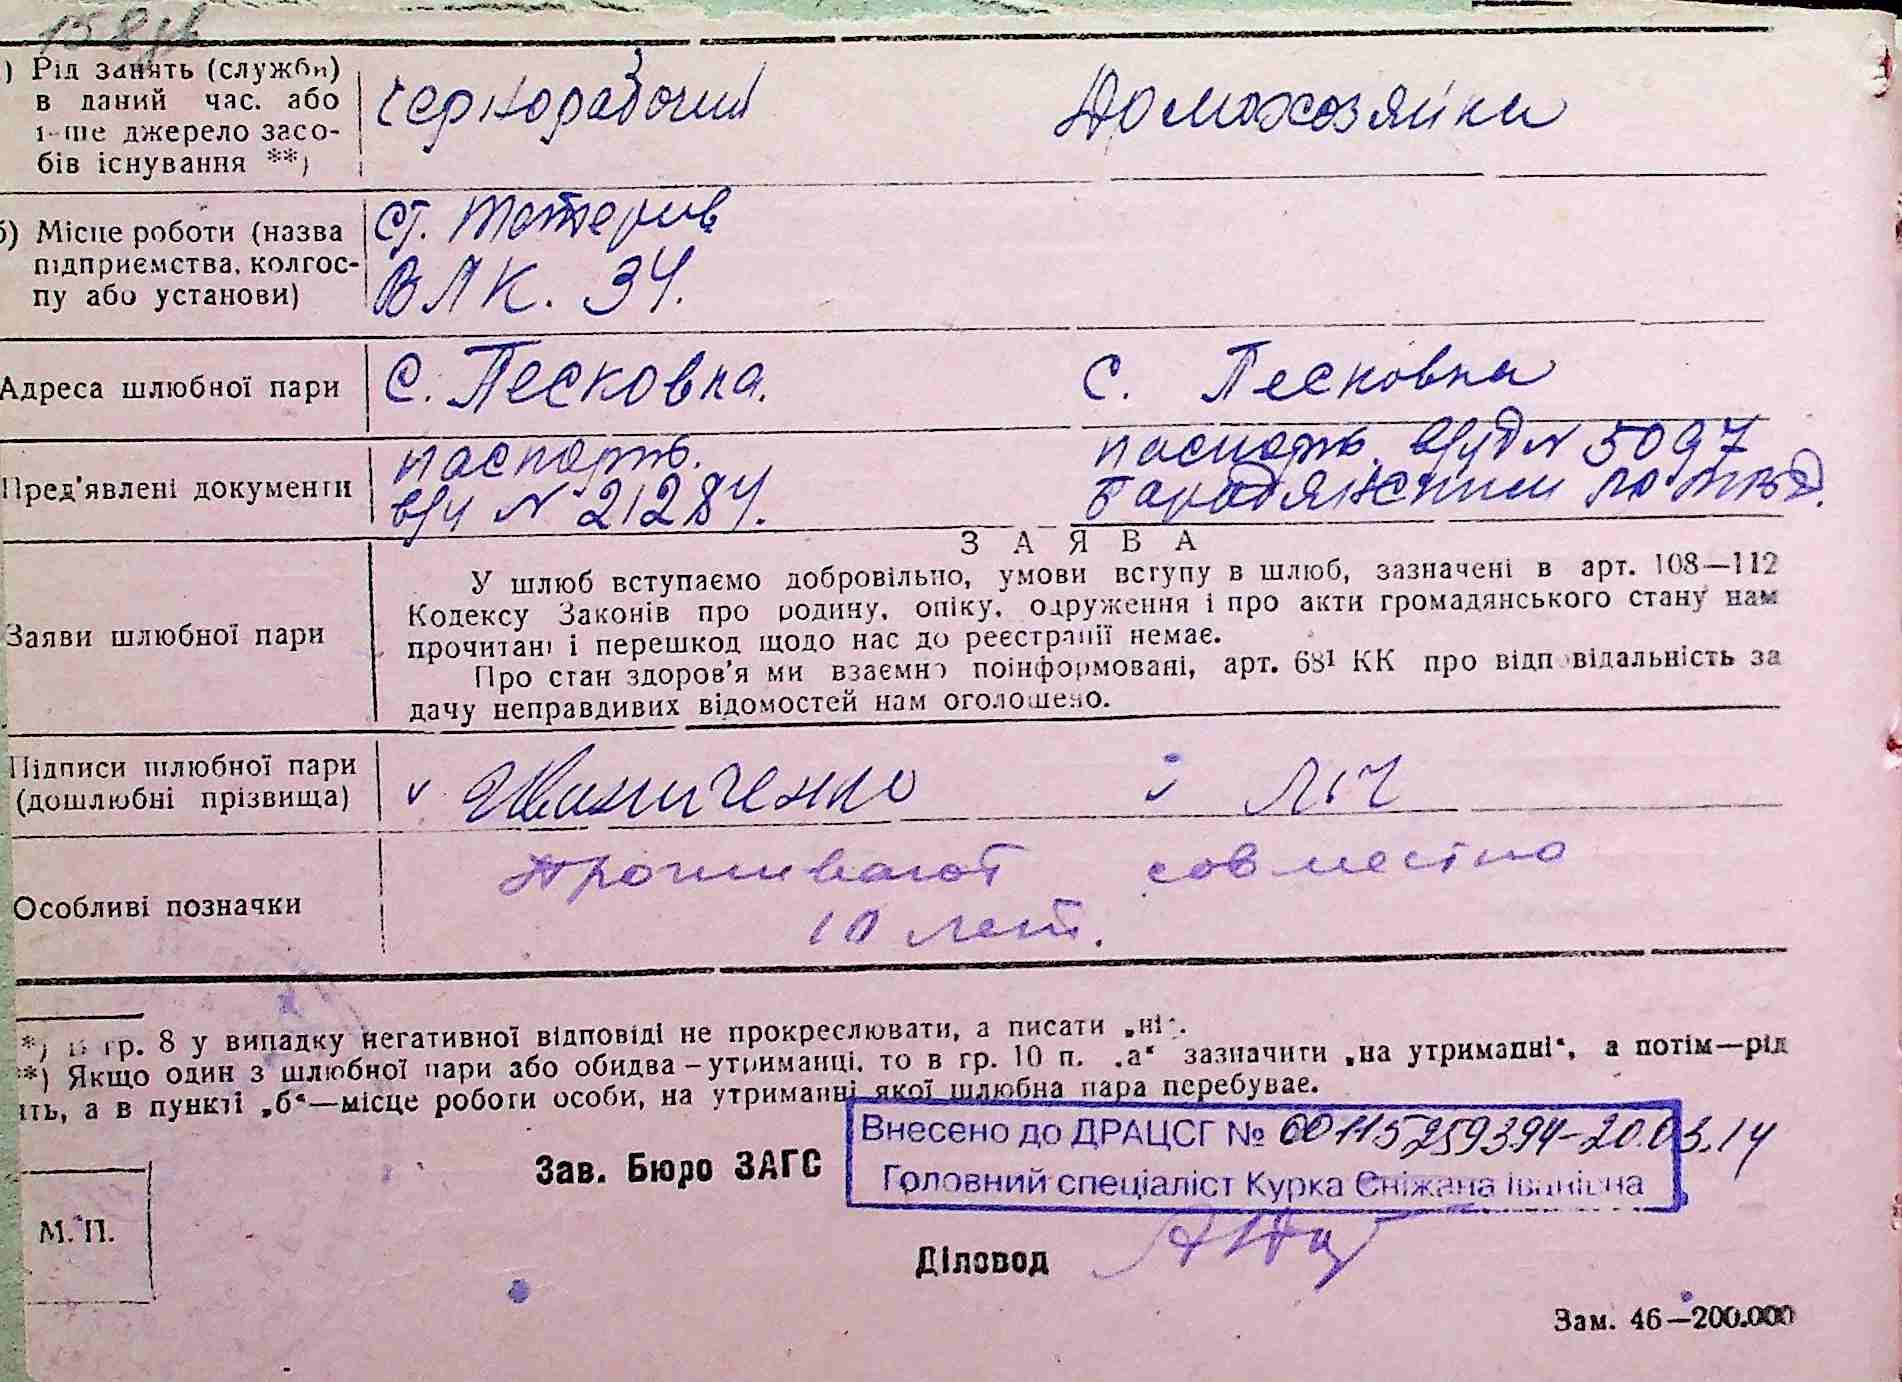 ) Рід занять (служби)
в даний час. або
інше джерело засо-
бів існування **)
Чернорабочий
Домохозяйка
б) Місце роботи (назва
підприємства, колгос-
пу або установи)
ст. Тетерив
ВЛК. 34.
Адреса шлюбної пари
с. Песковка.
с. Песковка
Пред'явлені документи
паспорть.
выд N 21284.
паспорть выд N 5097
З А Я В А
Заяви шлюбної пари
У шлюб вступаємо добровільно, умови вступу в шлюб, зазначені в арт. 108—112
Кодексу Законів про родину, опіку, одруження і про акти громадянського стану нам
прочитані і перешкод щодо нас до реєстрації немає.
Про стан здоров'я ми взаємно поінформовані, арт. 68¹ КК про відповідальність за
дачу неправдивих відомостей нам оголошено.
Підписи шлюбної пари
(дошлюбні прізвища)
Особливі позначки
Проживают совместно
10 лет.
*) В гр. 8 у випадку негативної відповіді не прокреслювати, а писати „ні“.
**) Якщо один з шлюбної пари або обидва – утриманці, то в гр. 10 п. „а“ зазначити „на утриманні“, а потім—рід
ять, а в пункті „б“—місце роботи особи, на утриманні якої шлюбна пара перебуває.
Внесено до ДРАЦСГ № 00115259394-20.03.14
Головний спеціаліст Курка Сніжана Іванівна
Зав. Бюро ЗАГС
М. П.
Діловод
Зам. 46—200.000